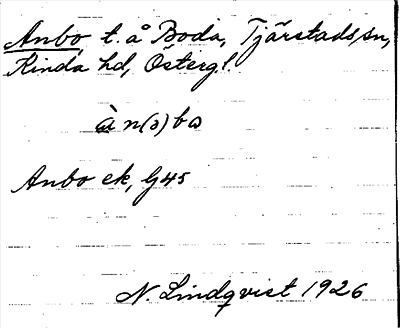 Anbo, t. å Boda, Tjärstads sn,
Kinda hd, Östergl.
àn(ɔ)bo
Anbo ek, G45
N. Lindqvist 1926